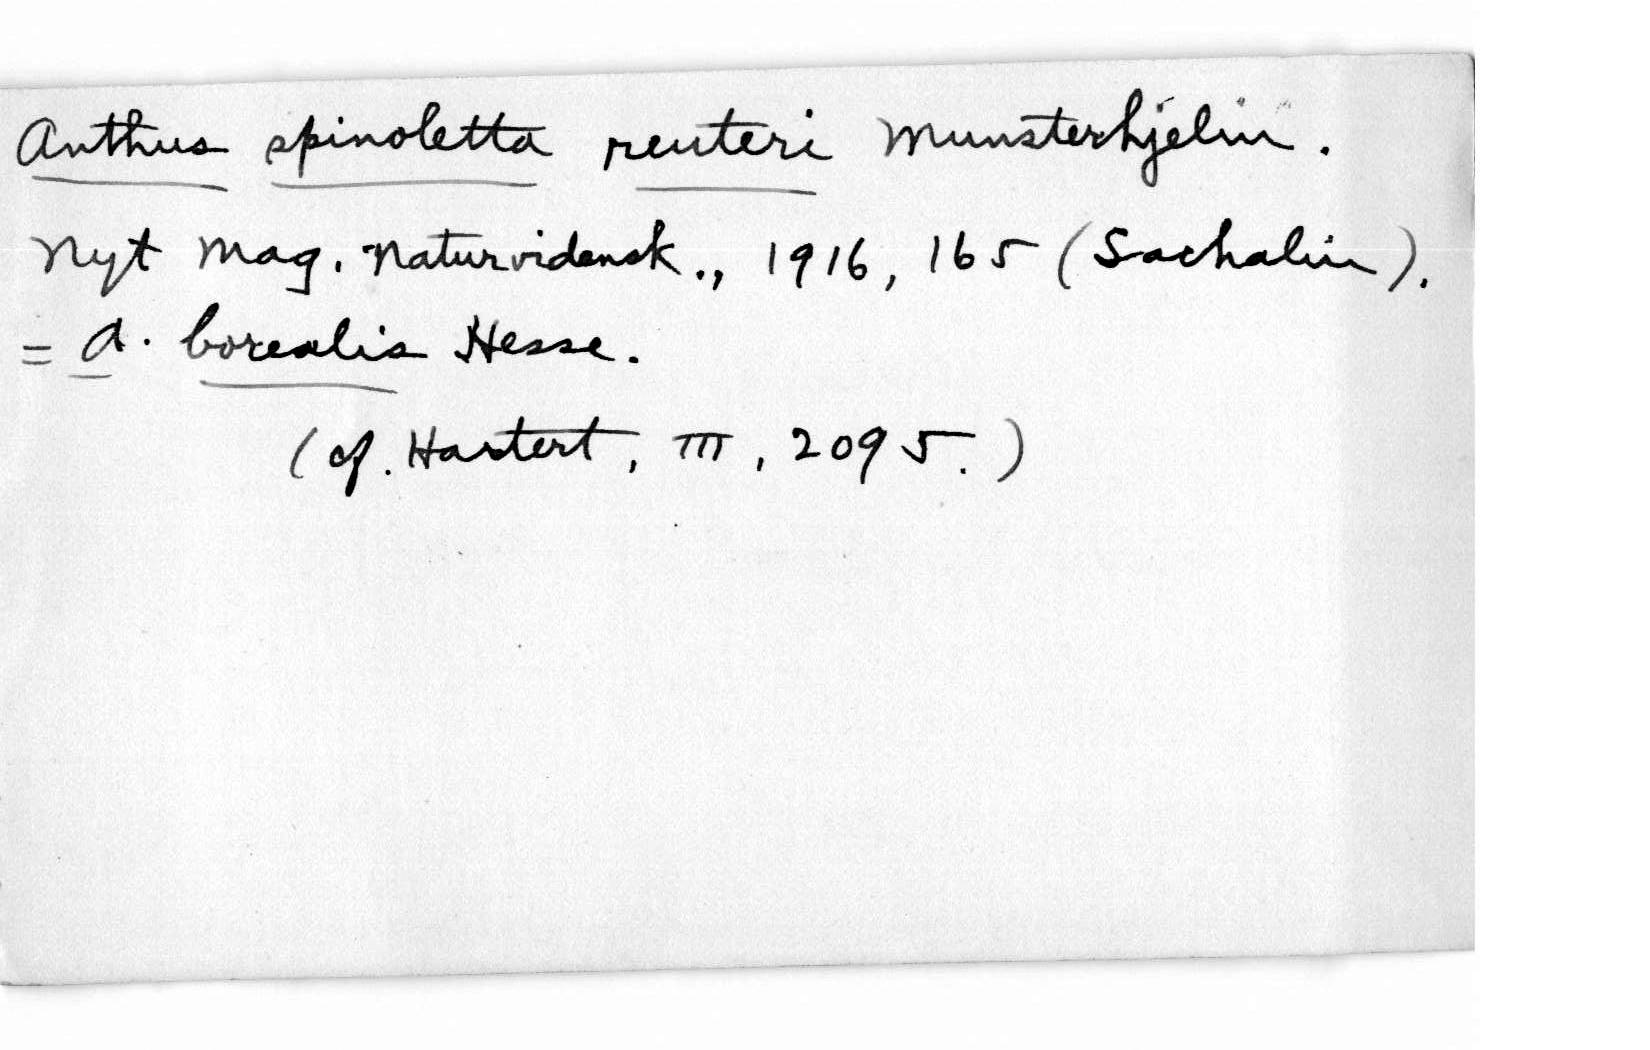 Anthus spinoletta reuteri Munsterhjelm.
Nyt Mag. Naturvidensk., 1916, 165 (Sachalin).
= A. borealis Hesse.
(cf. Hartert, III, 2095.)